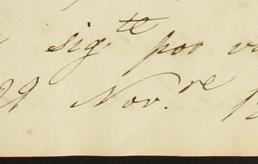 sig.te por v
29 Nov.re